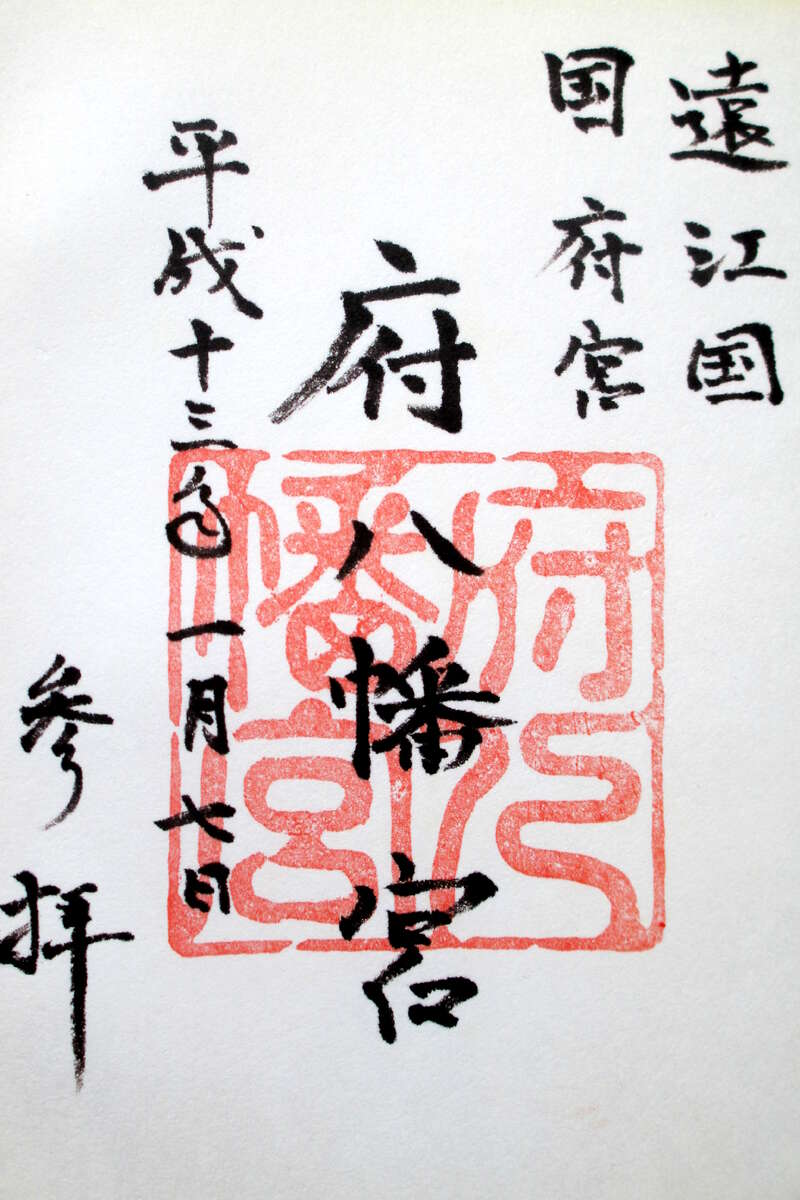 遠江国
国府宮
府八幡宮
平成十三年一月七日
参拝
府八幡宮